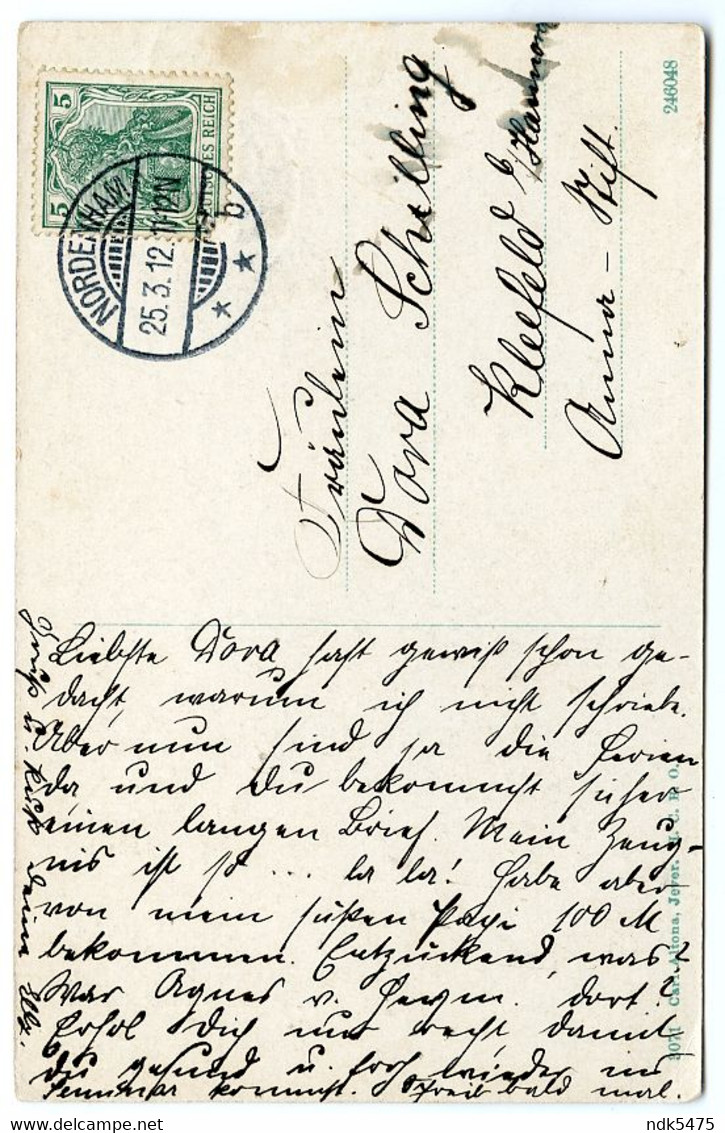 5
5
DEUTSCHES REICH
NORDENHAM
25.3.12. 11-12N
b
Fräulein
Dora Schilling
Kleefeld b/Hannover
Anna-Stift.
246048
Liebste Dora hast gewiß schon ge-
dacht, warum ich nicht schriebe.
Aber nun sind ja die Ferien
da und Du bekommst sicher
einen langen Brief. Mein Zeug-
nis ist so ... la la! Habe aber
von mein süßen Papi 100 M
bekommen. Entzückend, was?
War Agnes v. dort?
Erhol Dich nur recht, damit
Du gesund u. froh wieder ins
Seminar kommst. Schreib bald mal.
Gruß u. Kuß Deine
Carl Altona, Jever.
ndk5475